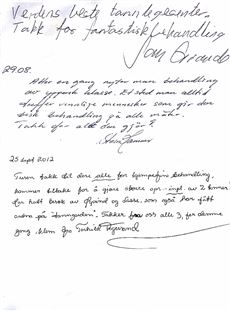 Verdens beste tannlegesenter.
Takk for fantastisk behandling
29.08.
Atter en gang nyter man behandling
av ypperste klasse. Et sted man alltid
treffer vennlige mennesker som gir den
best behandling på alle måter.
Takk for alt dere gjør!
25 sept 2012
Tusen takk til dere alle for kjempefin behandling,
kommer tilbake for å gjøre større opr. - impl. av 2 tenner
for hatt besøk av Øyvind og Lasse, som også har fått
ordna på "tanngarden". Takker for oss alle 3, for denne
gang, klem fra